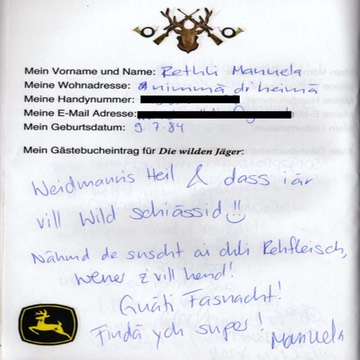 Mein Vorname und Name: Bethli Manuela
Meine Wohnadresse: nimmä diheimä
Meine Handynummer:
Meine E-Mail Adresse:
Mein Geburtsdatum: 9.7.84
Mein Gästebucheintrag für Die wilden Jäger:
Weidmanns Heil & dass iär
vill Wild schiässid
Nähmd de suscht ai chli Rehfleisch,
wener z'vill hend!
Guäti Fasnacht!
Findä ych super! Manuela